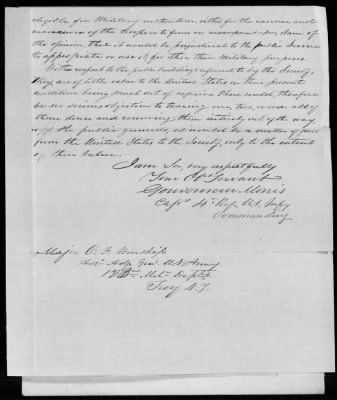 eligible for Military instruction, either for the exercise and
manœuvre of the troops or to form an encampment upon, I am of
the opinion that it would be prejudicial to the public service
to appropriate or use it for other than Military purposes.
With respect to the public buildings referred to by the Society,
they are of little value to the United States in their present
condition being much out of repair & there could, therefore
be no serious objection to tearing one, two, or even all of
them down and removing them entirely out of the way
off the public grounds, it would be a matter of favor
from the United States to the Society, only to the extent
of their value.
I am Sir, very respectfully
Your Obt Servant
Gouverneur Morris
Capt 4th Reg. U.S. Infy
Commanding
Major O. F. Winship
Asst Adj. Genl U.S. Army
Mily Dept
Troy N.Y.